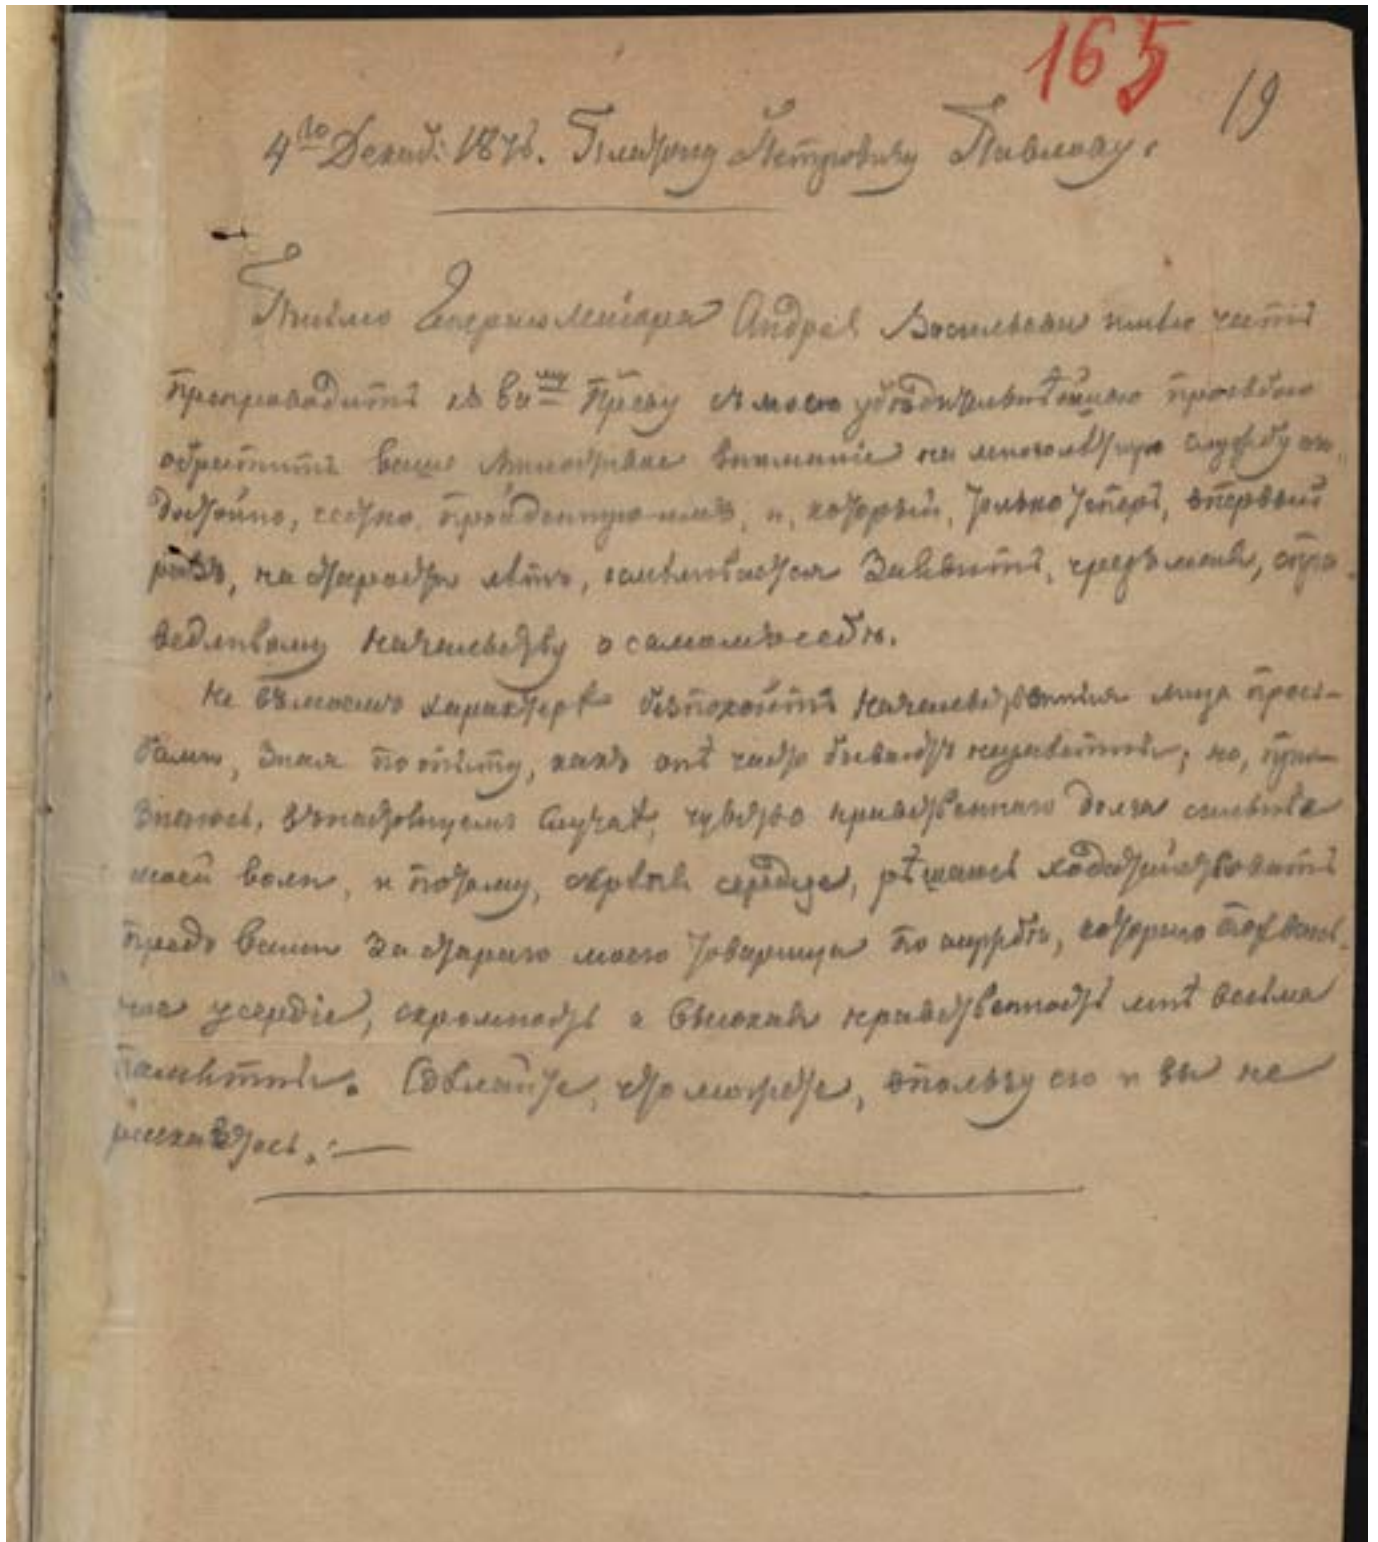 165
19
4го Декаб: 187. Платону Петровичу Павлову.
Письмо Генерал Маиора Андрея Васильевича имею честь
препроводить къ Ваму Преву съ моею убѣдительнѣйшею просьбою
обратить ваше милостивое вниманіе на многолѣтнюю службу
достойно, честно, пройденную имъ, и, который, только теперь, впервый
разъ, на старости лѣтъ, осмѣливается Заявить, чрезъ меня, спра-
ведливому Начальству о самомъ себѣ.
Не въ моемъ характерѣ безпокоить Начальственныя лица прось-
бами, Зная по опыту, какъ онѣ часто бываютъ непріятны; но, при-
знаюсь, въ настоящемъ Случаѣ, чувство нравственнаго долга сильнѣе
моей воли, и потому, скрѣпя сердце, рѣшаюсь ходатайствовать
предъ вами за стараго моего товарища по службѣ, котораго
усердіе, скромность и высокая нравственность мнѣ весьма
памятны. Сдѣлайте, что можете, впользу его и вы не
раскаетесь.:—